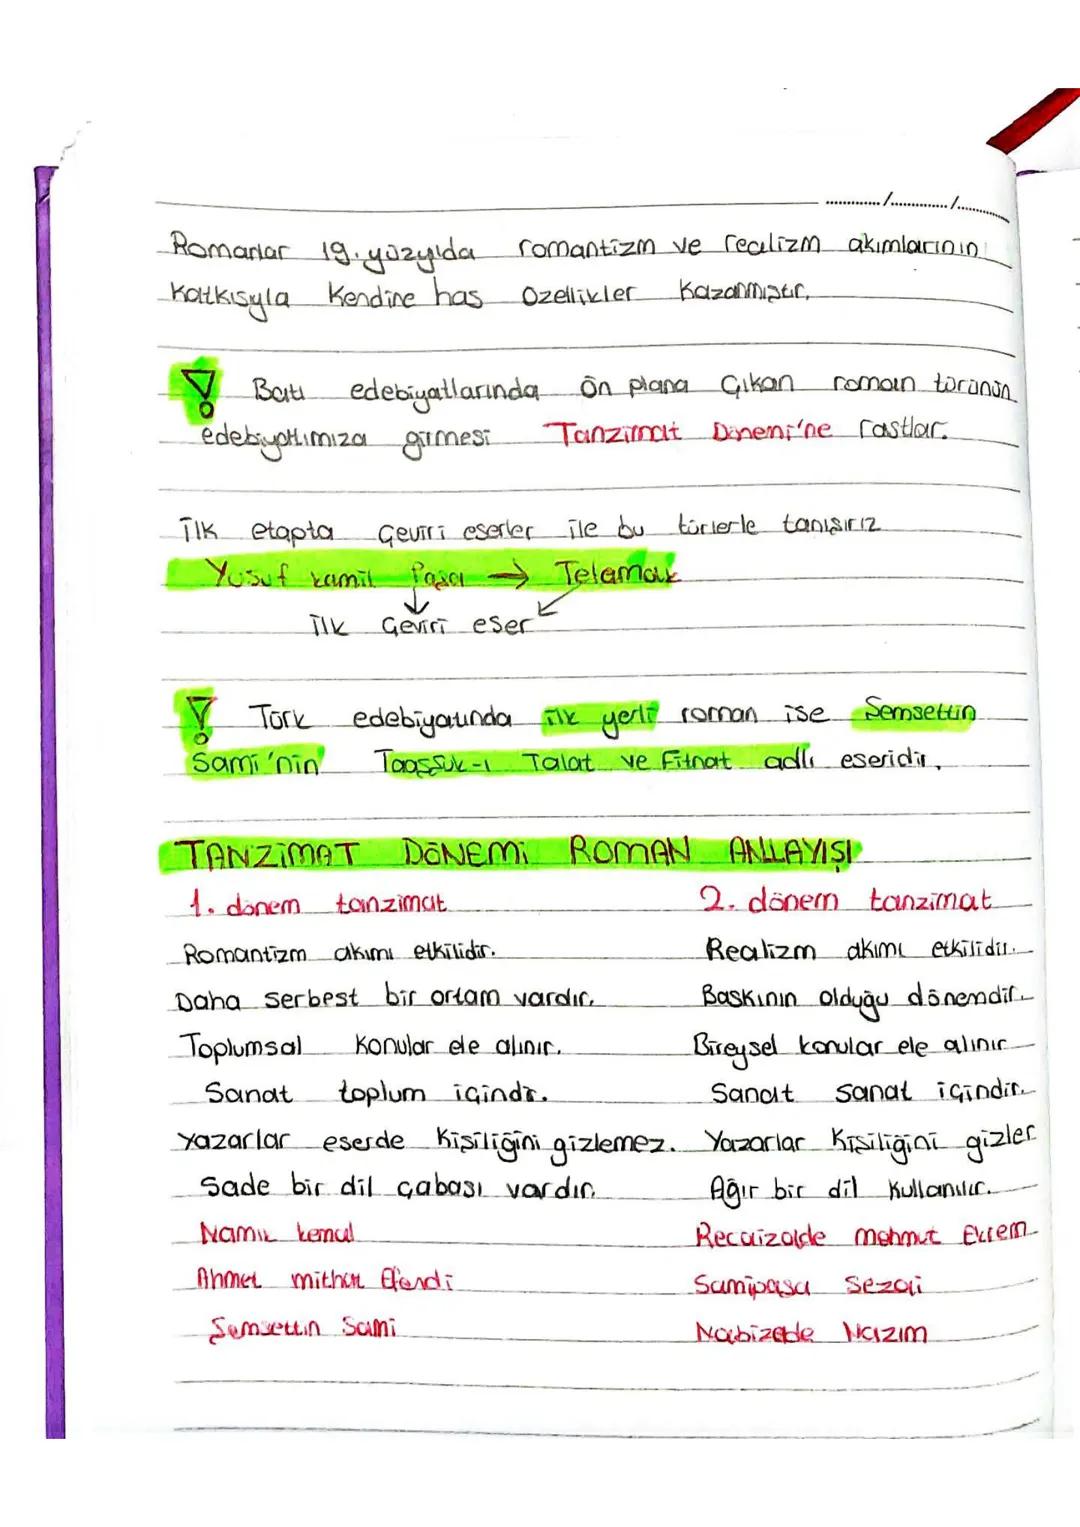 ............/............../............
Romanlar 19. yüzyılda romantizm ve realizm akımlarının
katkısıyla kendine has özellikler kazanmıştır.
Batı edebiyatlarında ön plana çıkan roman türünün
edebiyatımıza girmesi Tanzimat Dönemi'ne rastlar.
İlk etapta çeviri eserler ile bu türlerle tanışırız
Yusuf kamil Paşa → Telamak
ilk çeviri eser
Türk edebiyatında ilk yerli roman ise Şemsettin
Sami'nin Taaşşuk-ı Talat ve Fitnat adlı eseridir.
TANZİMAT DÖNEMİ ROMAN ANLAYIŞI
1. dönem tanzimat 2. dönem tanzimat
Romantizm akımı etkilidir. Realizm akımı etkilidir.
Daha serbest bir ortam vardır. Baskının olduğu dönemdir.
Toplumsal konular ele alınır. Bireysel konular ele alınır
Sanat toplum içindir. Sanat sanat içindir.
Yazarlar eserde kişiliğini gizlemez. Yazarlar kişiliğini gizler
Sade bir dil çabası vardır. Ağır bir dil kullanılır.
Namık kemal Recaizade mahmut Ekrem
Ahmet mithat Efendi Samipaşa Sezai
Şemsettin Sami Nabizade Nazım